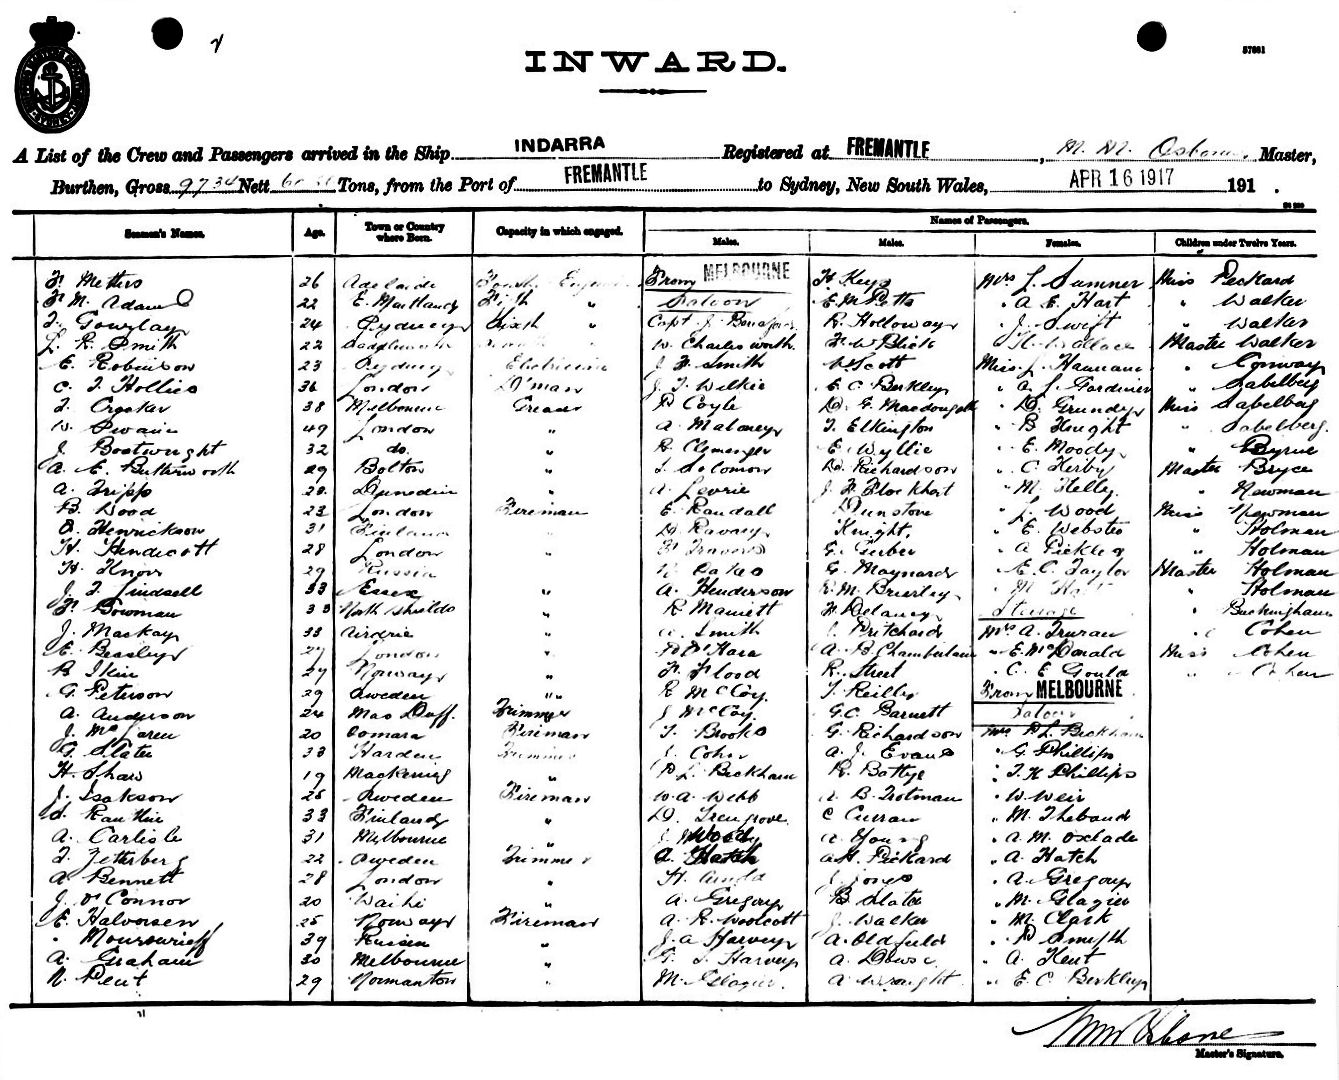 57661
INWARD.
A List of the Crew and Passengers arrived in the Ship INDARRA Registered at FREMANTLE, M. M. Osborne, Master,
Burthen, Gross 9734 Nett Tons, from the Port of FREMANTLE to Sydney, New South Wales, APR 16 1917 191 .
Seamen's Names. Age. Town or Country where Born. Capacity in which engaged. Names of Passengers.
Males. Males. Females. Children under Twelve Years.
26 Adelaide Fourth Engineer From MELBOURNE H Keys Mrs J. Sumner Miss Peckard
22 E. Maitland Fifth " Saloon E M Potts " A. E. Hart " Walker
T. Gourlay 24 Sydney Sixth " Capt J. R. Holloway " J. Swift " Walker
L. R. Smith 22 W. Charlesworth " Wallace Master Walker
E. Robinson 23 Sydney Electrician J H Smith Scott Miss J. Hannam " Conway
C. J. Hollies 36 London D'man J. T. Wilkie E C Berkley " A. J. Gardiner " Sabelberg
T. Crocker 38 Melbourne Greaser P Coyle D. G. Macdougall " D. Grundy Miss Sabelberg
W. Swain 49 London " A. Maloney T. Elkington " B Knight " Sabelberg.
J. Boatwright 32 do. " R. Clemenger E Wyllie " E. Moody " Byrne
A. E. Butterworth 29 Bolton " T. Solomon D. Richardson " C Kirby Master Bryce
A. Tripp Dunedin " A. J. H Flockhart " M. Kelly " Newman
B. Wood 23 London Fireman E. Randall Dunstone " J. Wood Miss Newman
O. Henrickson 31 Finland " Knight. " E. Webster " Holman
H. Hendicott 28 London " F. Travers G. Gerber " A Pickles " Holman
H. Knorr 29 Russia " G. Maynard " E. C. Taylor Master Holman
J. T. Lindsell 33 Essex " A. Henderson R. M. Brierley " M. " Holman
F. Bowman 33 North Shields " R Marriett H Delaney Steerage " Buckingham
J. Mackay 33 Airdrie " A. Smith J. Pritchard Mrs A. Truran " Cohen
E. Beasley 27 London " A. B. Chamberlain " E. McDonald Miss Cohen
B Skin 27 Norway " H Flood R. Street " C. E Gould " Cohen
G. Peterson 29 Sweden " R McCoy. T. Reilly From MELBOURNE
A. Anderson 24 Trimmer J McCoy. G. C. Barnett Saloon
J. McLaren 20 Fireman T. Brooks G. Richardson Mrs P L. Beckham
G. Slater 33 Trimmer J. Cohn A. J. Evans " G. Phillips
H. Shaw 19 " P L. Beckham R. Battye " T. H Phillips
J. Isakson 25 Sweden Fireman W. A. Webb A. B. Trotman " W. Weir
33 Finland " D. Trengrove. C Curran " M. Thebaud
A. Carlisle 31 Melbourne " J. J Moody A. Young " A. M. Oxlade
T. Zetterberg 22 Sweden Trimmer A. Hatch A. H. Pickard " A. Hatch
A. Bennett 28 London " H. Arnold J. Jones " A. Gregory
J. O'Connor 20 Waihi " A. Gregory B Slater " M. Glazier
E. Halvorsen 25 Norway Fireman A. R. Woolcott J. Walker " M. Clark
39 " J. A Harvey A. Oldfield " P Smyth
A. Graham 30 Melbourne " G. J. Harvey A. Dowse " A. Kent
29 Normanton " M. Glazier. A. Wright " E C. Berkley
Master's Signature.